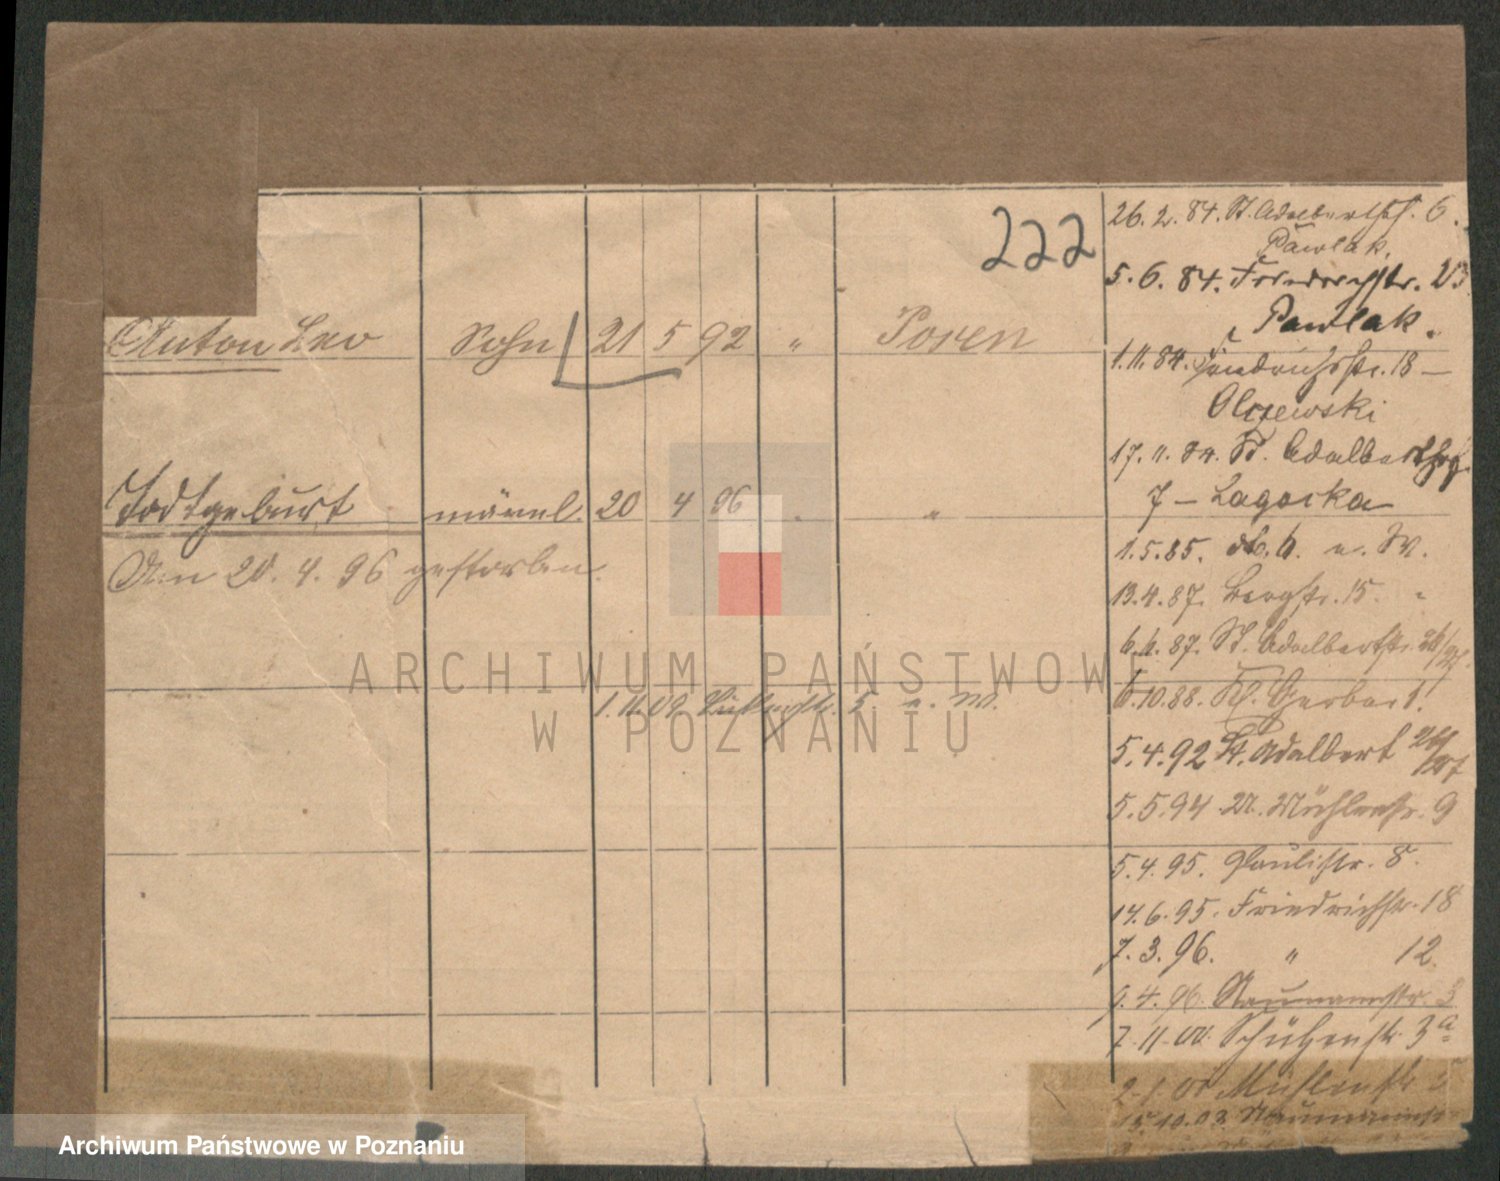 222
Anton Leo Sohn 21 5 92 " Posen
Todtgeburt männl. 20 4 96 " "
Am 20. 4. 96 gestorben.
5. u. W.
26. 2. 84. St. Adalbertstr. 6.
Pawlak.
5. 6. 84. Friedrichstr. 23
Pawlak.
1. 11. 84. Friedrichstr. 18 —
Olczewski
17. 11. 84. St. Adalbertstr.
7 — Lagocka
1. 5. 85. u. W.
13. 4. 87. Bergstr. 15. "
87. St. Adalbertstr. 26/27.
6. 10. 88. Kl. Gerber 1.
5. 4. 92 St. Adalbert 26/27
5. 5. 94 Mühlenstr. 9
5. 4. 95. Paulistr. 8.
14. 6. 95. Friedrichstr. 18
7. 3. 96. " 12
9. 4. 96. Naumannstr. 3
7. 11. 00. Schützenstr. 3a
Mühlenstr.
15. 10. 03 Naumannstr.
ARCHIWUM PAŃSTWOWE
W POZNANIU
Archiwum Państwowe w Poznaniu